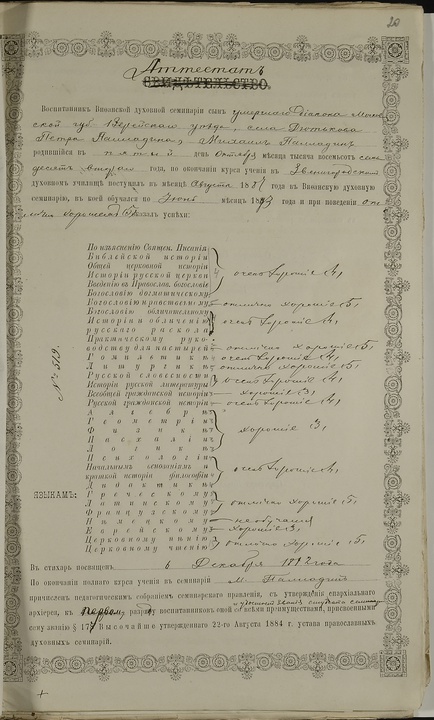 20
Аттестатъ
СВИДѢТЕЛЬСТВО.
Воспитанникъ Виѳанской духовной семинаріи сынъ умершаго діакона Москов
ской губ. Верейскаго уѣзда, села
Петра Палладина, Михаилъ Палладинъ
родившійся въ пятый день Октября мѣсяца тысяча восемьсотъ семь
десятъ втораго года, по окончаніи курса ученія въ Звенигородскомъ
духовномъ училищѣ поступилъ въ мѣсяцѣ Августѣ 1887 года въ Виѳанскую духовную
семинарію, въ коей обучался по Іюнь мѣсяцъ 1893 года и при поведеніи от
лично хорошемъ (5) оказалъ успѣхи:
По изъясненію Священ. Писанія
Библейской исторіи
Общей церковной исторіи
Исторіи русской церкви
Введенію въ Православ. богословіе
Богословію догматическому
очень хорошіе 4,
Богословію нравственному отлично хорошіе 5,
Богословію обличительному
Исторіи и обличенію
русскаго раскола
очень хорошіе 4,
Практическому руко-
водству для пастырей отлично хорошіе 5,
Гомилетикѣ очень хорошіе 4,
Литургикѣ отлично хорошіе 5,
Русской словесности
Исторіи русской литературы
очень хорошіе 4,
Всеобщей гражданской исторіи хорошіе 3,
Русской гражданской исторіи очень хорошіе 4,
Алгебрѣ
Геометріи
Физикѣ
Пасхаліи
хорошіе 3,
Логикѣ
Психологіи
Начальнымъ основаніямъ и
краткой исторіи философіи
Дидактикѣ
очень хорошіе 4,
ЯЗЫКАМЪ:
Греческому
Латинскому
Французскому
отлично хорошіе 5,
Нѣмецкому не обучался
Еврейскому хорошіе 3,
Церковному пѣнію
Церковному чтенію
отлично хорошіе 5,
№ 519.
Въ стихарь посвященъ 6 Декабря 1892 года
По окончаніи полнаго курса ученія въ семинаріи М. Палладинъ
причисленъ педагогическимъ собраніемъ семинарскаго правленія, съ утвержденія епархіальнаго
архіерея, къ первому разряду воспитанниковъ оной съ всѣми преимуществами, присвоенными
званія студента семинаріи
сему званію § 177 Высочайше утвержденнаго 22-го Августа 1884 г. устава православныхъ
духовныхъ семинарій.